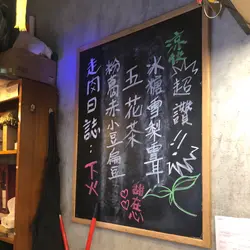 涼優 超讚!!
冰糖雪梨雪耳
五花茶
粉葛赤小豆扁豆
走肉日誌：下火